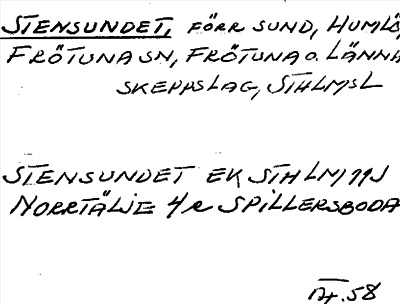 STENSUNDET, FÖRR SUND, HUMLÖ,
FRÖTUNA SN, FRÖTUNA O. LÄNNA
SKEPPSLAG, STHLMSL
STENSUNDET EK STHLM 11J
NORRTÄLJE 4 SPILLERSBODA
58